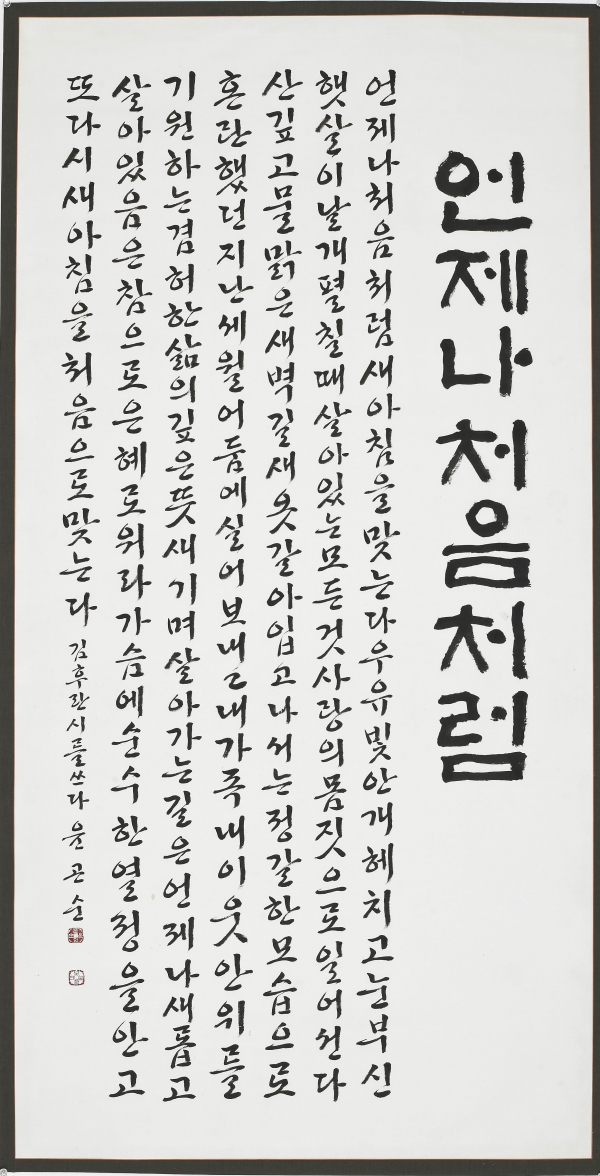 언제나처음처럼
언제나처음처럼새아침을맞는다우유빛안개헤치고눈부신
햇살이날개펼칠때살아있는모든것사랑의몸짓으로일어선다
산깊고물맑은새벽길새옷갈아입고나서는정갈한모습으로
혼란했던지난세월어둠에실어보내내가족내이웃안위를
기원하는겸허한삶의깊은뜻새기며살아가는길은언제나새롭고
살아있음은참으로은혜로워라가슴에순수한열정을안고
또다시새아침을처음으로맞는다 김후란시를쓰다 윤곤순